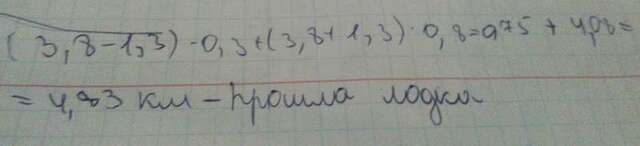 (3,8-1,3)·0,3+(3,8+1,3)·0,8=0,75+4,08=
=4,83 км-прошла лодка